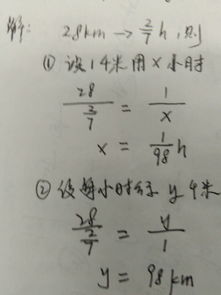 解: 28km → 2/7 h, 则
① 设 1千米用 x 小时
28 / (2/7) = 1 / x
x = 1/98 h
② 设每小时行 y 千米
28 / (2/7) = y / 1
y = 98 km